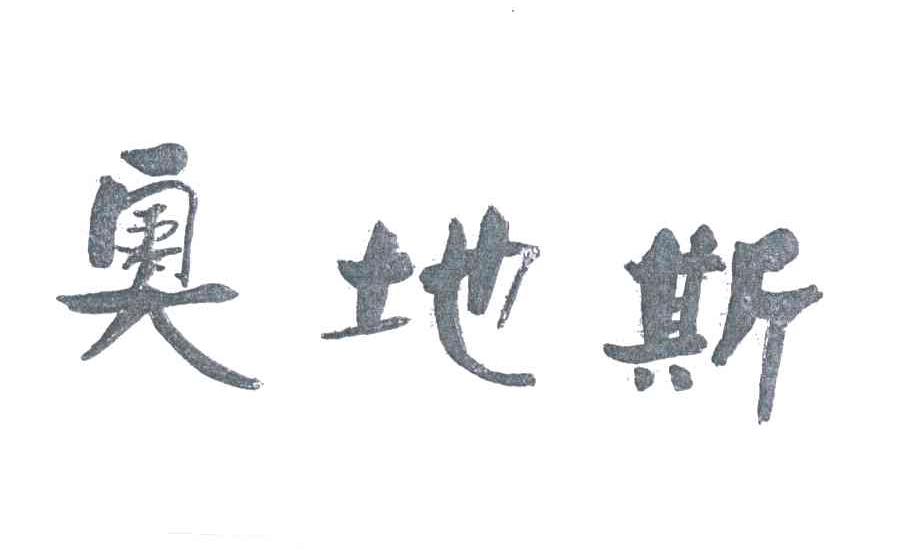 奥地斯